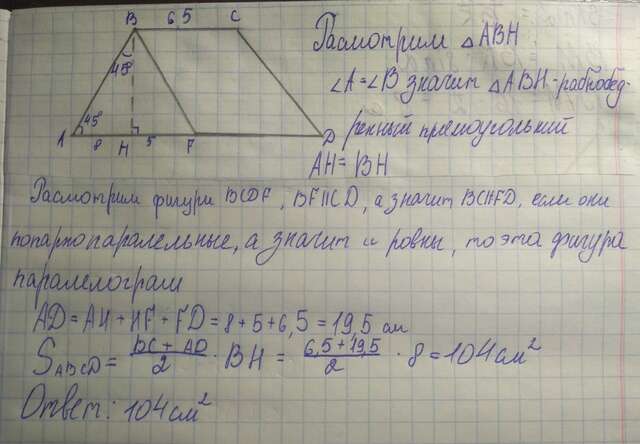 B 6,5 C
45°
45°
A 8 H 5 F D
Расмотрим △ABH
∠A=∠B значит △ABH-равнобед-
ренный прямоугольний
AH=BH
Расмотрим фигури BCDF, BF||CD, а значит BC||FD, если они
попарнопаралельные, а значит и ровны, то эта фигура
паралелограм
AD=AH+HF+FD=8+5+6,5=19,5 см
S ABCD = BC+AD/2 · BH = 6,5+19,5/2 · 8=104см²
Ответ: 104см²